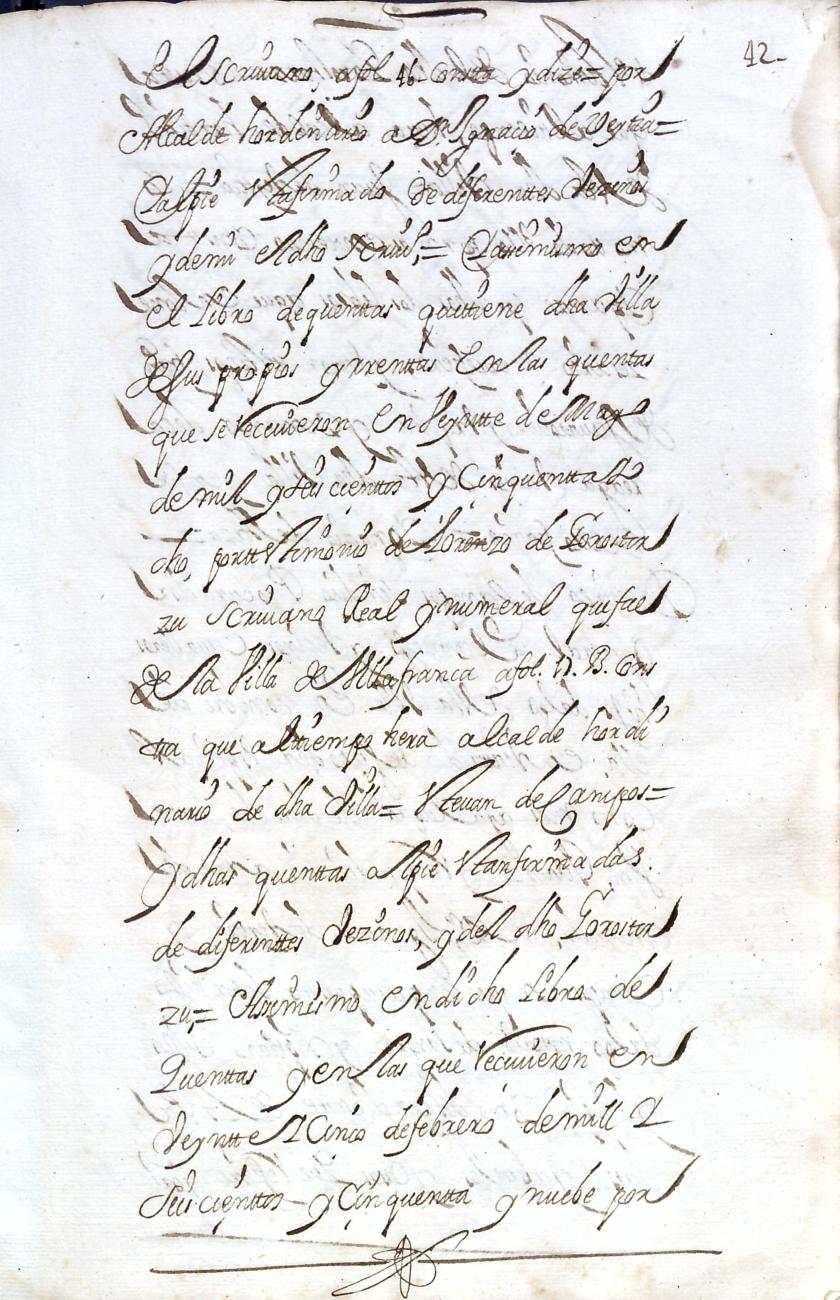 42-
el Scriuano, afol 46. consta y dize = por
Alcalde hordinario a Dn. Ygnacio de Veytia =
Y al pie esta firmado de diferenttes Vezinos
y de mi el dho scriuo, = Y asimismo en
el libro de quenttas que tiene dha Villa
de sus propios y rrenttas En las quentas
que se rrecivieron En Veyntte de Mayo
de mil y seis cienttos y Cinquentta y o
cho, por testimonio de Lorenzo de Gorostor
zu scriuano Real y numeral que fue
de la Villa de Villafranca afol. 17. B. Cons
ta que al ttiempo hera alcalde hordi
nario de dha Villa = Estevan de Campos =
Y dhas quenttas al pie estan firmadas.
de diferenttes Vezinos, y del dho Gorostor
zu, = Asimismo en dicho libro de
Quenttas y en las que rrecivieron en
Veyntte y Cinco de febrero de mill y
Seis cienttos y Cinquentta y nuebe por